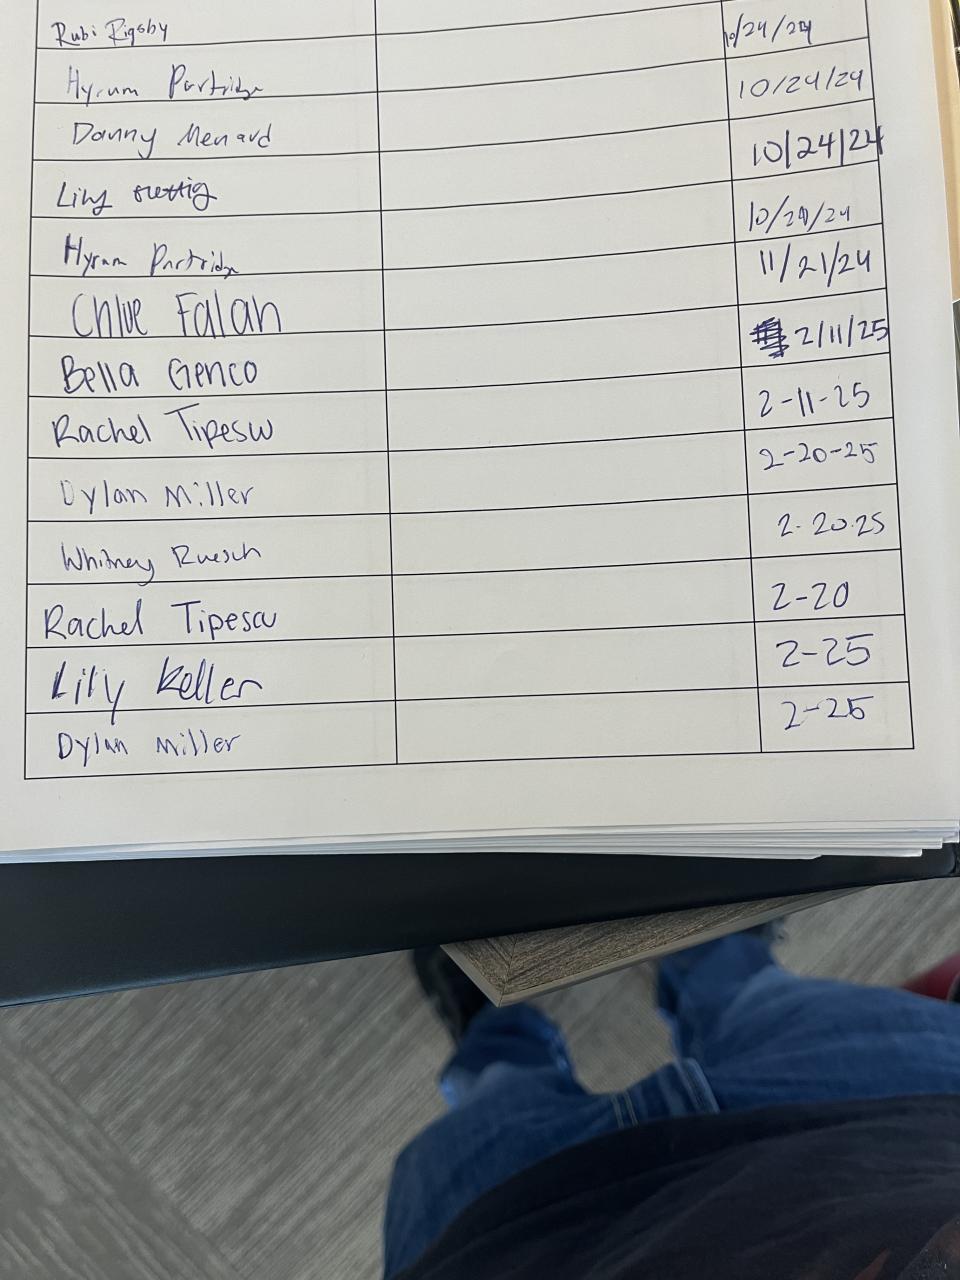 Rubi Rigsby 10/24/24
Hyrum Partridge 10/24/24
Danny Menard 10/24/24
Lily 10/24/24
Hyrum Partridge 11/21/24
Chloe Falah 2/11/25
Bella Genco 2-11-25
Rachel Tipescu 2-20-25
Dylan Miller 2-20-25
Whitney Ruesch 2-20
Rachel Tipescu 2-25
Lily Keller 2-25
Dylan Miller